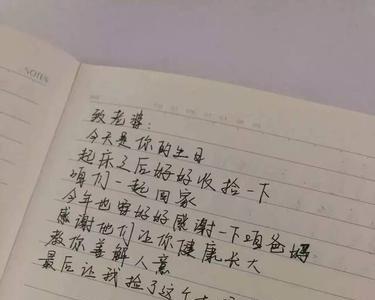 NOTES
致老婆:
今天是你的生日
起床之后好好收拾一下
咱们一起回家
今年也要好好感谢一下咱爸妈
感谢他们让你健康长大
教你善解人意
最后让我捡了这个